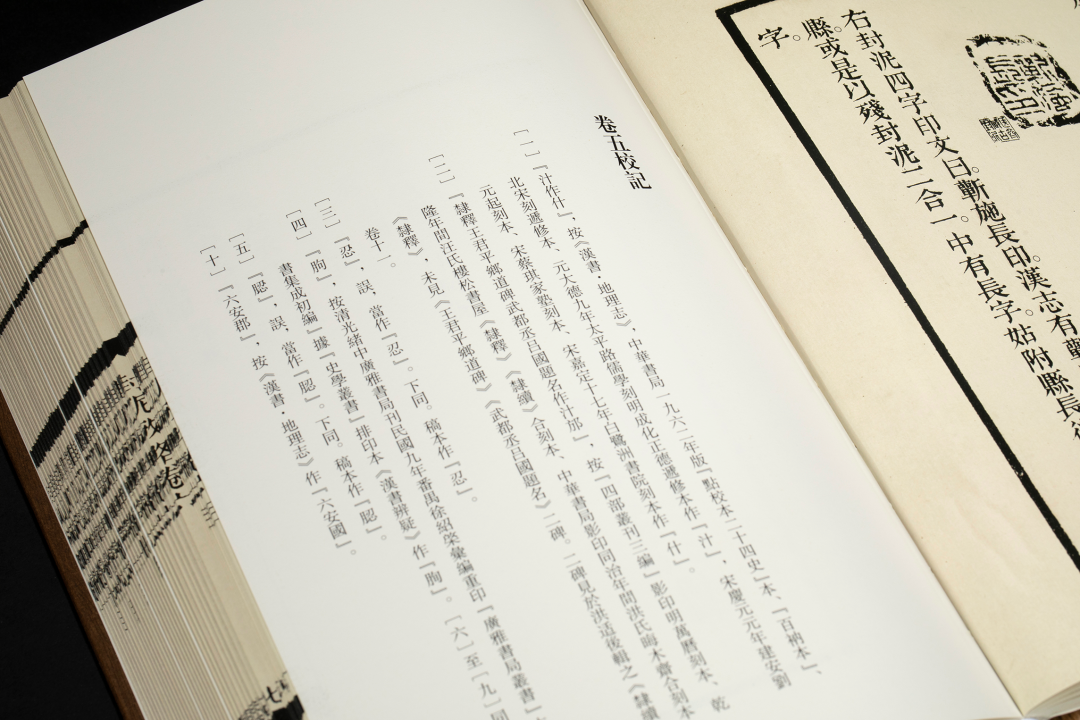 右封泥四字印文曰蘄施長印漢志有蘄
縣或是以殘封泥二合一中有長字姑附縣長後
字
卷五校記
〔一〕『汁作什』，按《漢書·地理志》，中華書局一九六二年版『點校本二十四史』本、『百衲本』、
北宋刻遞修本、元大德九年太平路儒學刻明成化正德遞修本作『汁』，宋慶元元年建安劉
元起刻本、宋蔡琪家塾刻本、宋嘉定十七年白鷺洲書院刻本作『什』。
〔二〕『隸釋王君平鄉道碑武都丞呂國題名作汁邡』，按『四部叢刊三編』影印明萬曆刻本、乾
隆年間汪氏樓松書屋《隸釋》《隸續》合刻本、中華書局影印同治年間洪氏晦木齋合刻本
《隸釋》，未見《王君平鄉道碑》《武都丞呂國題名》二碑。二碑見於洪适後輯之《隸續
卷十一。
〔三〕『忍』，誤，當作『忍』。下同。稿本作『忍』。
〔四〕『朐』，按清光緒中廣雅書局刊民國九年番禺徐紹棨彙編重印『廣雅書局叢書』
書集成初編』據『史學叢書』排印本《漢書辨疑》作『朐』。〔六〕至〔九〕同
〔五〕『䏰』，誤，當作『䏰』。下同。稿本作『䏰』。
〔十〕『六安郡』，按《漢書·地理志》作『六安國』。
七